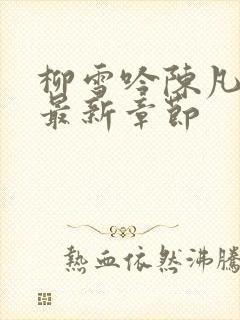 柳雪吟陳凡
最新章節
熱血依然沸騰